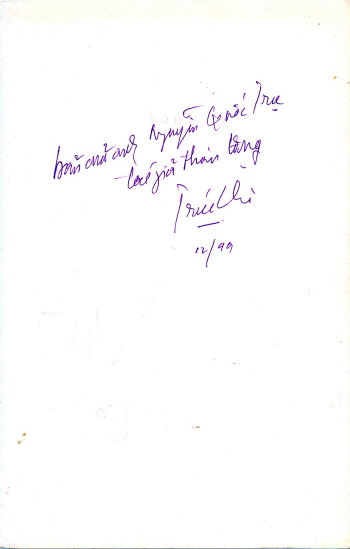 bản của anh Nguyễn Quốc Trụ
tác giả thân tặng
Trúc Chi
12/99